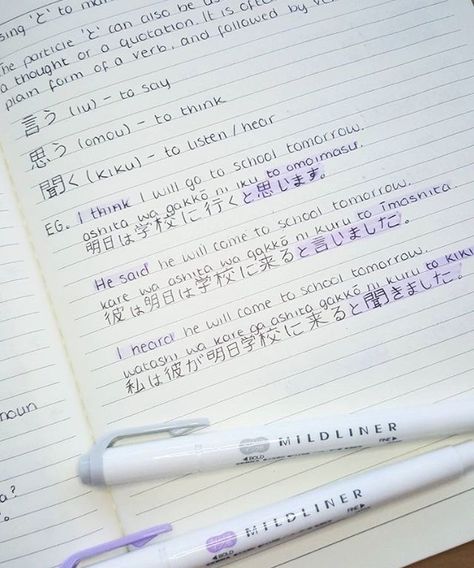 sing 'と' to ma
The particle 'と' can also be us
a thought or a quotation. It is ofte
plain form of a verb, and followed by ve
言う (iu) - to say
思う (omou) - to think
聞く (kiku) - to listen / hear
EG. I think I will go to school tomorrow.
ashita wa gakkō ni iku to omoimasu.
明日は学校に行くと思います。
He said he will come to school tomorrow.
kare wa ashita wa gakkō ni kuru to īmashita
彼は明日は学校に来ると言いました。
I heard he will come to school tomorrow.
watashi wa kare ga ashita gakkō ni kuru to kiki
私は彼が明日学校に来ると聞きました。
noun
a?
MILDLINER
BOLD
FINE
MILDLINER
BOLD
FINE